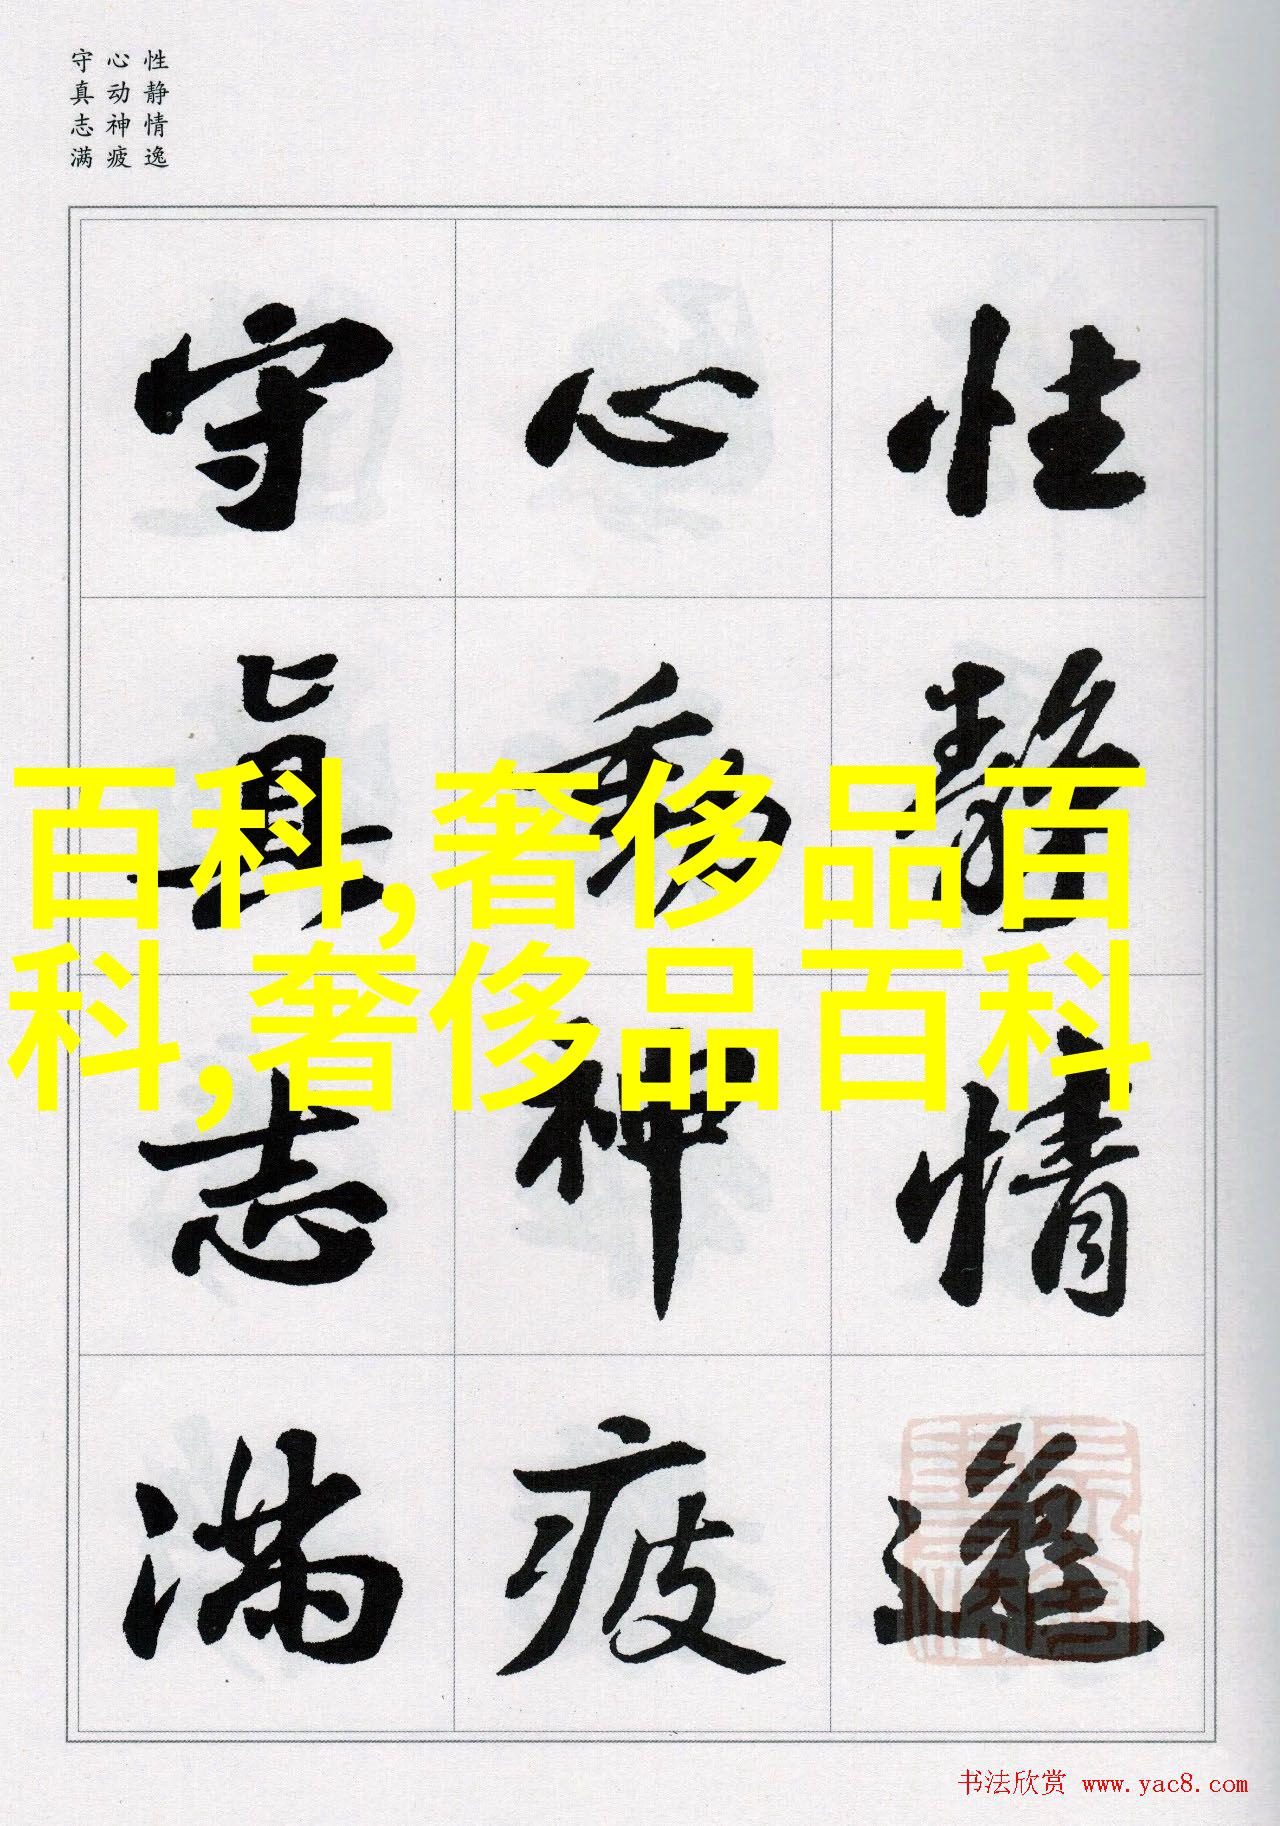 性静情逸
心动神疲
守真志满
性静情逸
心動神疲
守真志满
百科,奢侈品百
科,奢侈品百科
书法欣赏 www.yac8.com